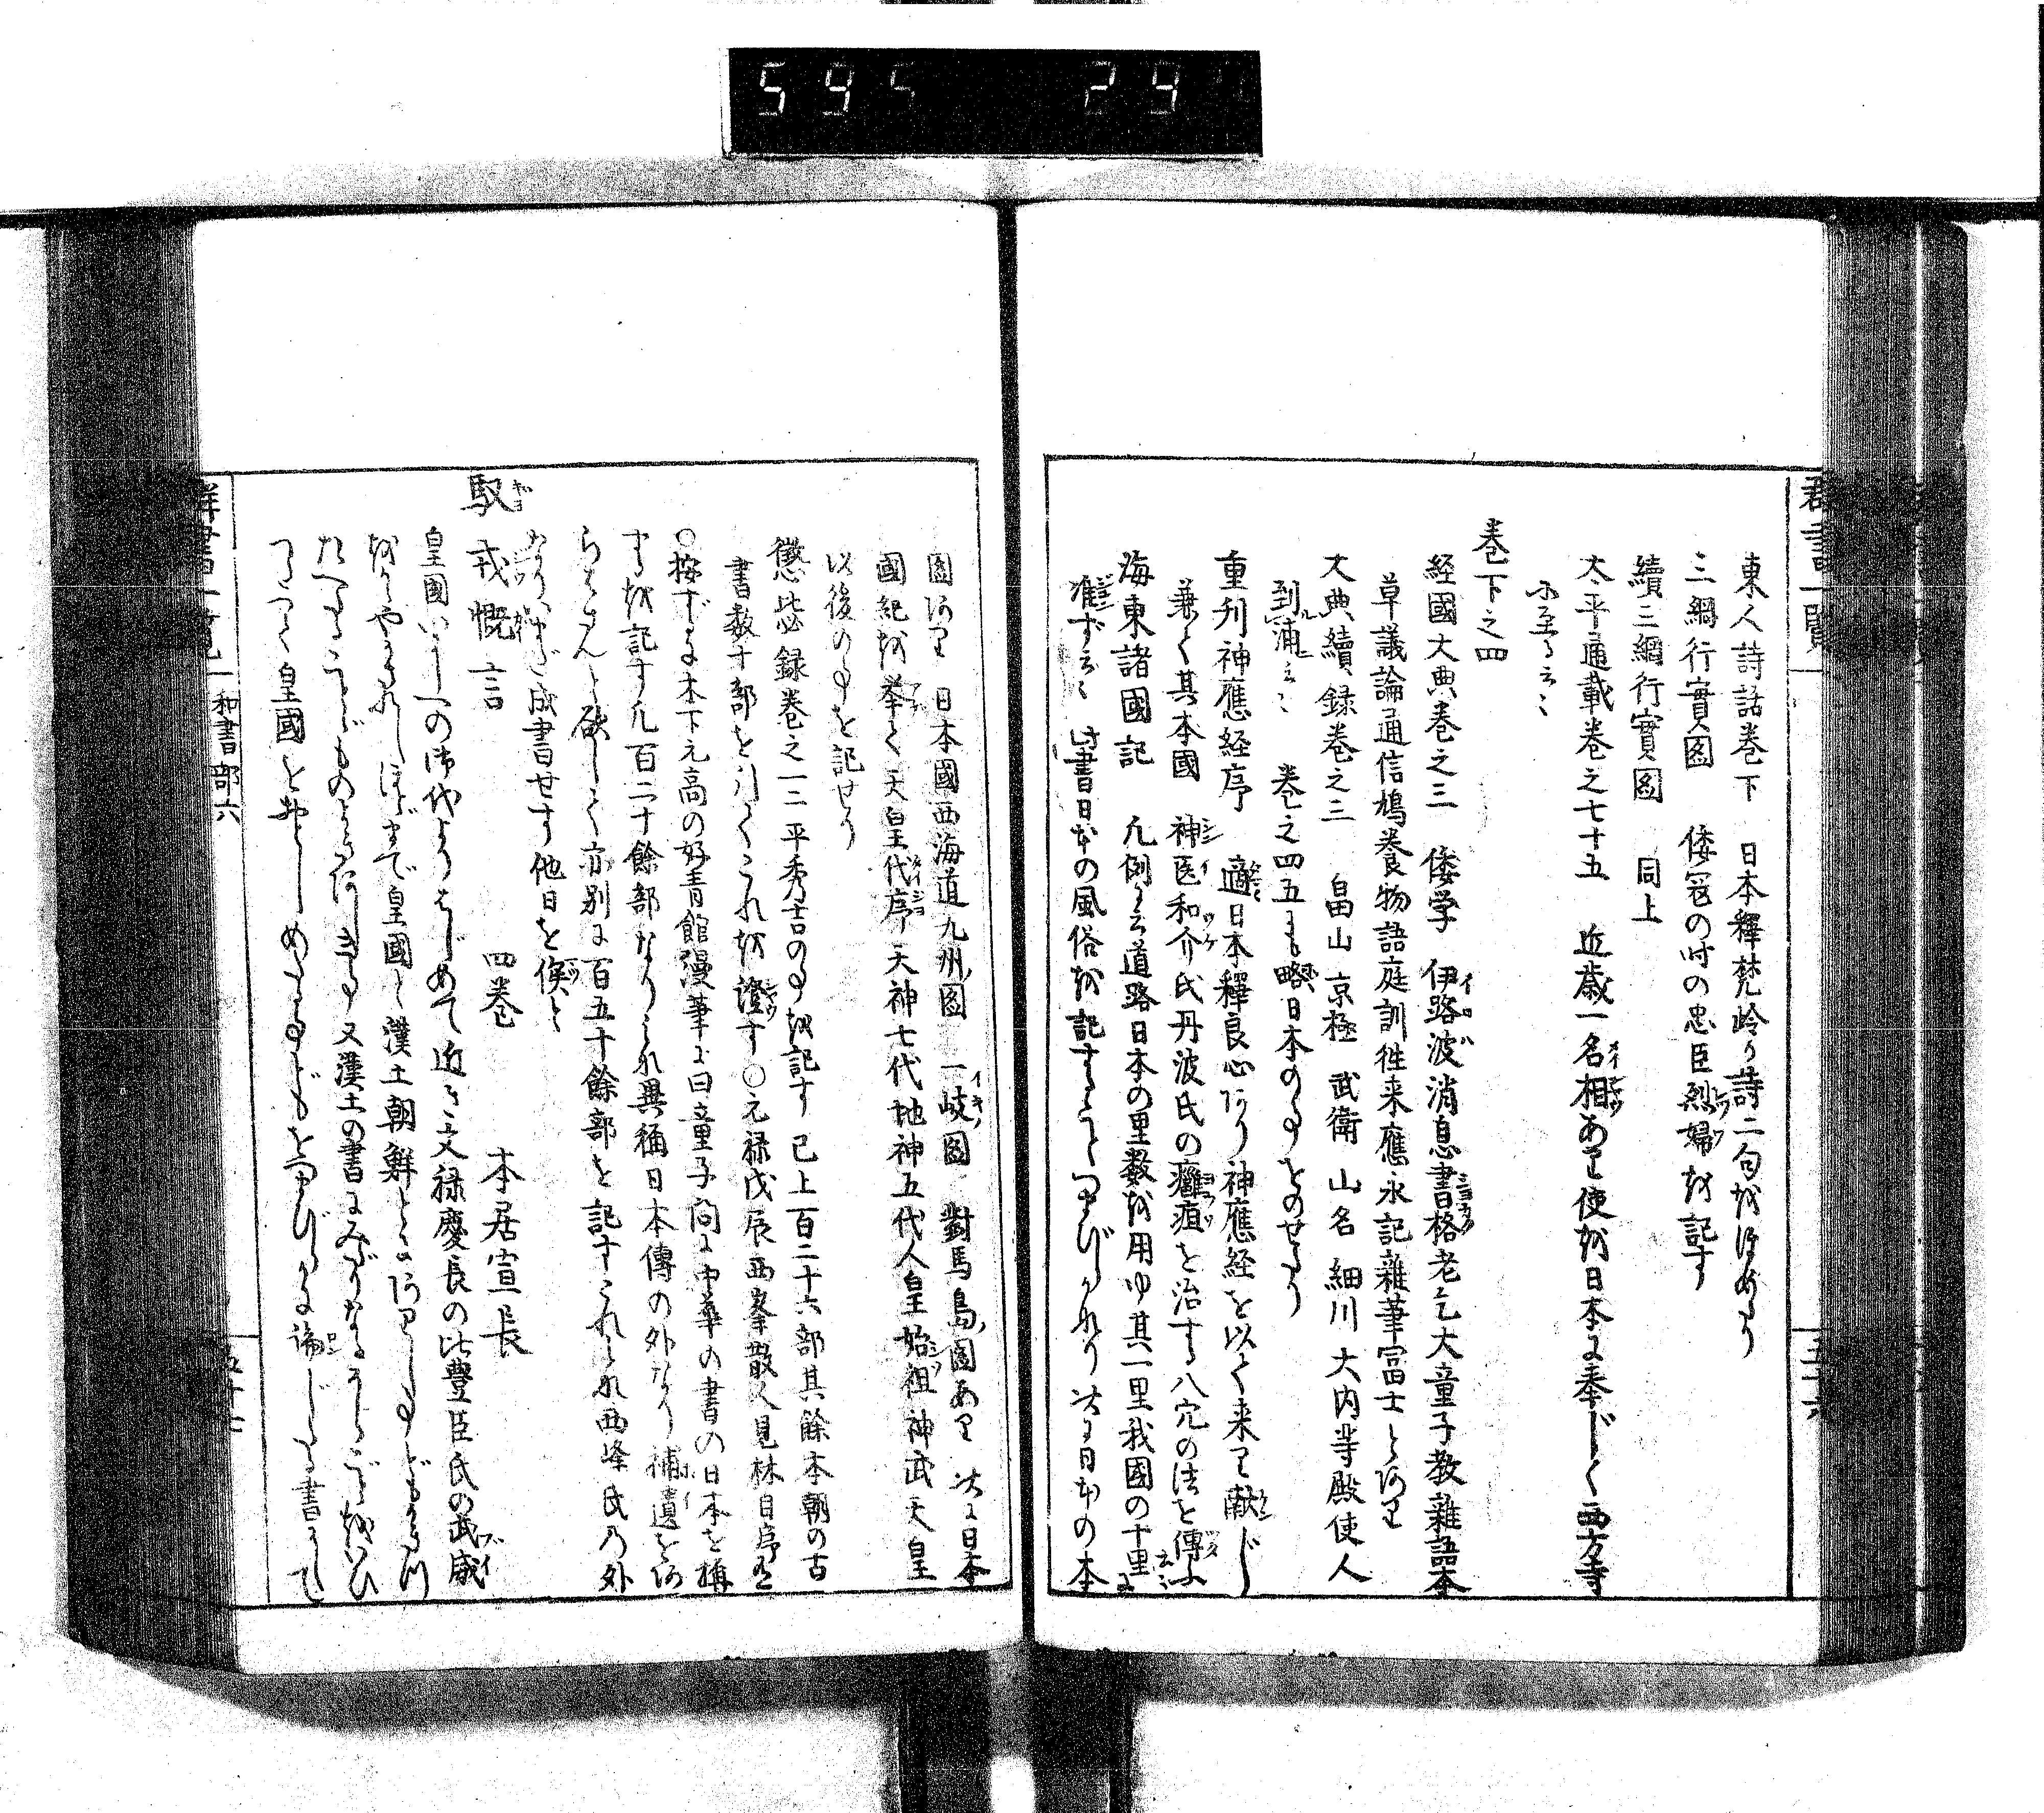 595 29
群書一覧
東人詩話巻下 日本釋梵岭が詩二句をほめたり
三綱行實圖 倭冦の時の忠臣烈婦を記す
續三綱行實圖 同上
太平通載巻之七十五 近歳一名相あり使を日本に奉じて西方寺
に至る云々
巻下之四
経國大典巻之三 倭学 伊路波消息書格老乞大童子教雜語本
草議論通信鳩養物語庭訓徃来應永記雜筆冨士とあり
大典續録巻之三 畠山京極 武衛 山名 細川 大内等殿使人
到浦云々 巻之四五にも畧日本の事をのせたり
重刋神應経序 適日本釋良心あり神應経を以て来り献じ
兼て其本國 神医和介氏丹波氏の癰疽を治する八穴の法を傳ふ云々
海東諸國記 凡例に云道路日本の里数を用ゆ其一里我國の十里に
准ず云々 此書日本の風俗を記することつまびらかなり 次に日本の本
圖あり 日本國西海道九州圖 一岐圖 對馬島圖あり 次に日本
國紀を挙て天皇代序 天神七代地神五代人皇始祖神武天皇
以後の事を記せり
懲毖録巻之一二 平秀吉の事を記す 已上百二十六部其餘本朝の古
書数十部を引てこれを證す○元禄戊辰西峯散人見林自序有
○按ずるに木下元高の好青館漫筆に曰童子問に中華の書の日本を稱
するを記す凡百二十餘部なりこれ異稱日本傳の外なり補遺をあ
らはさんと欲して亦別に百五十餘部を記すこれこれ西峰氏の外
なりいまだ成書せず他日を俟と
馭戎慨言 四巻 本居宣長
皇國いにしへの御代よりはじめて近き文禄慶長の比豊臣氏の武威
をかゞやかされしほどまで皇國と漢土朝鮮とことありし事どもかきつ
たへることどものよきあしき事又漢土の書にみだりなるそらごとをいひ
つたへて皇國をおとしめたる事どもをつまびらかに論じたる書にして
群書一覧 和書部六